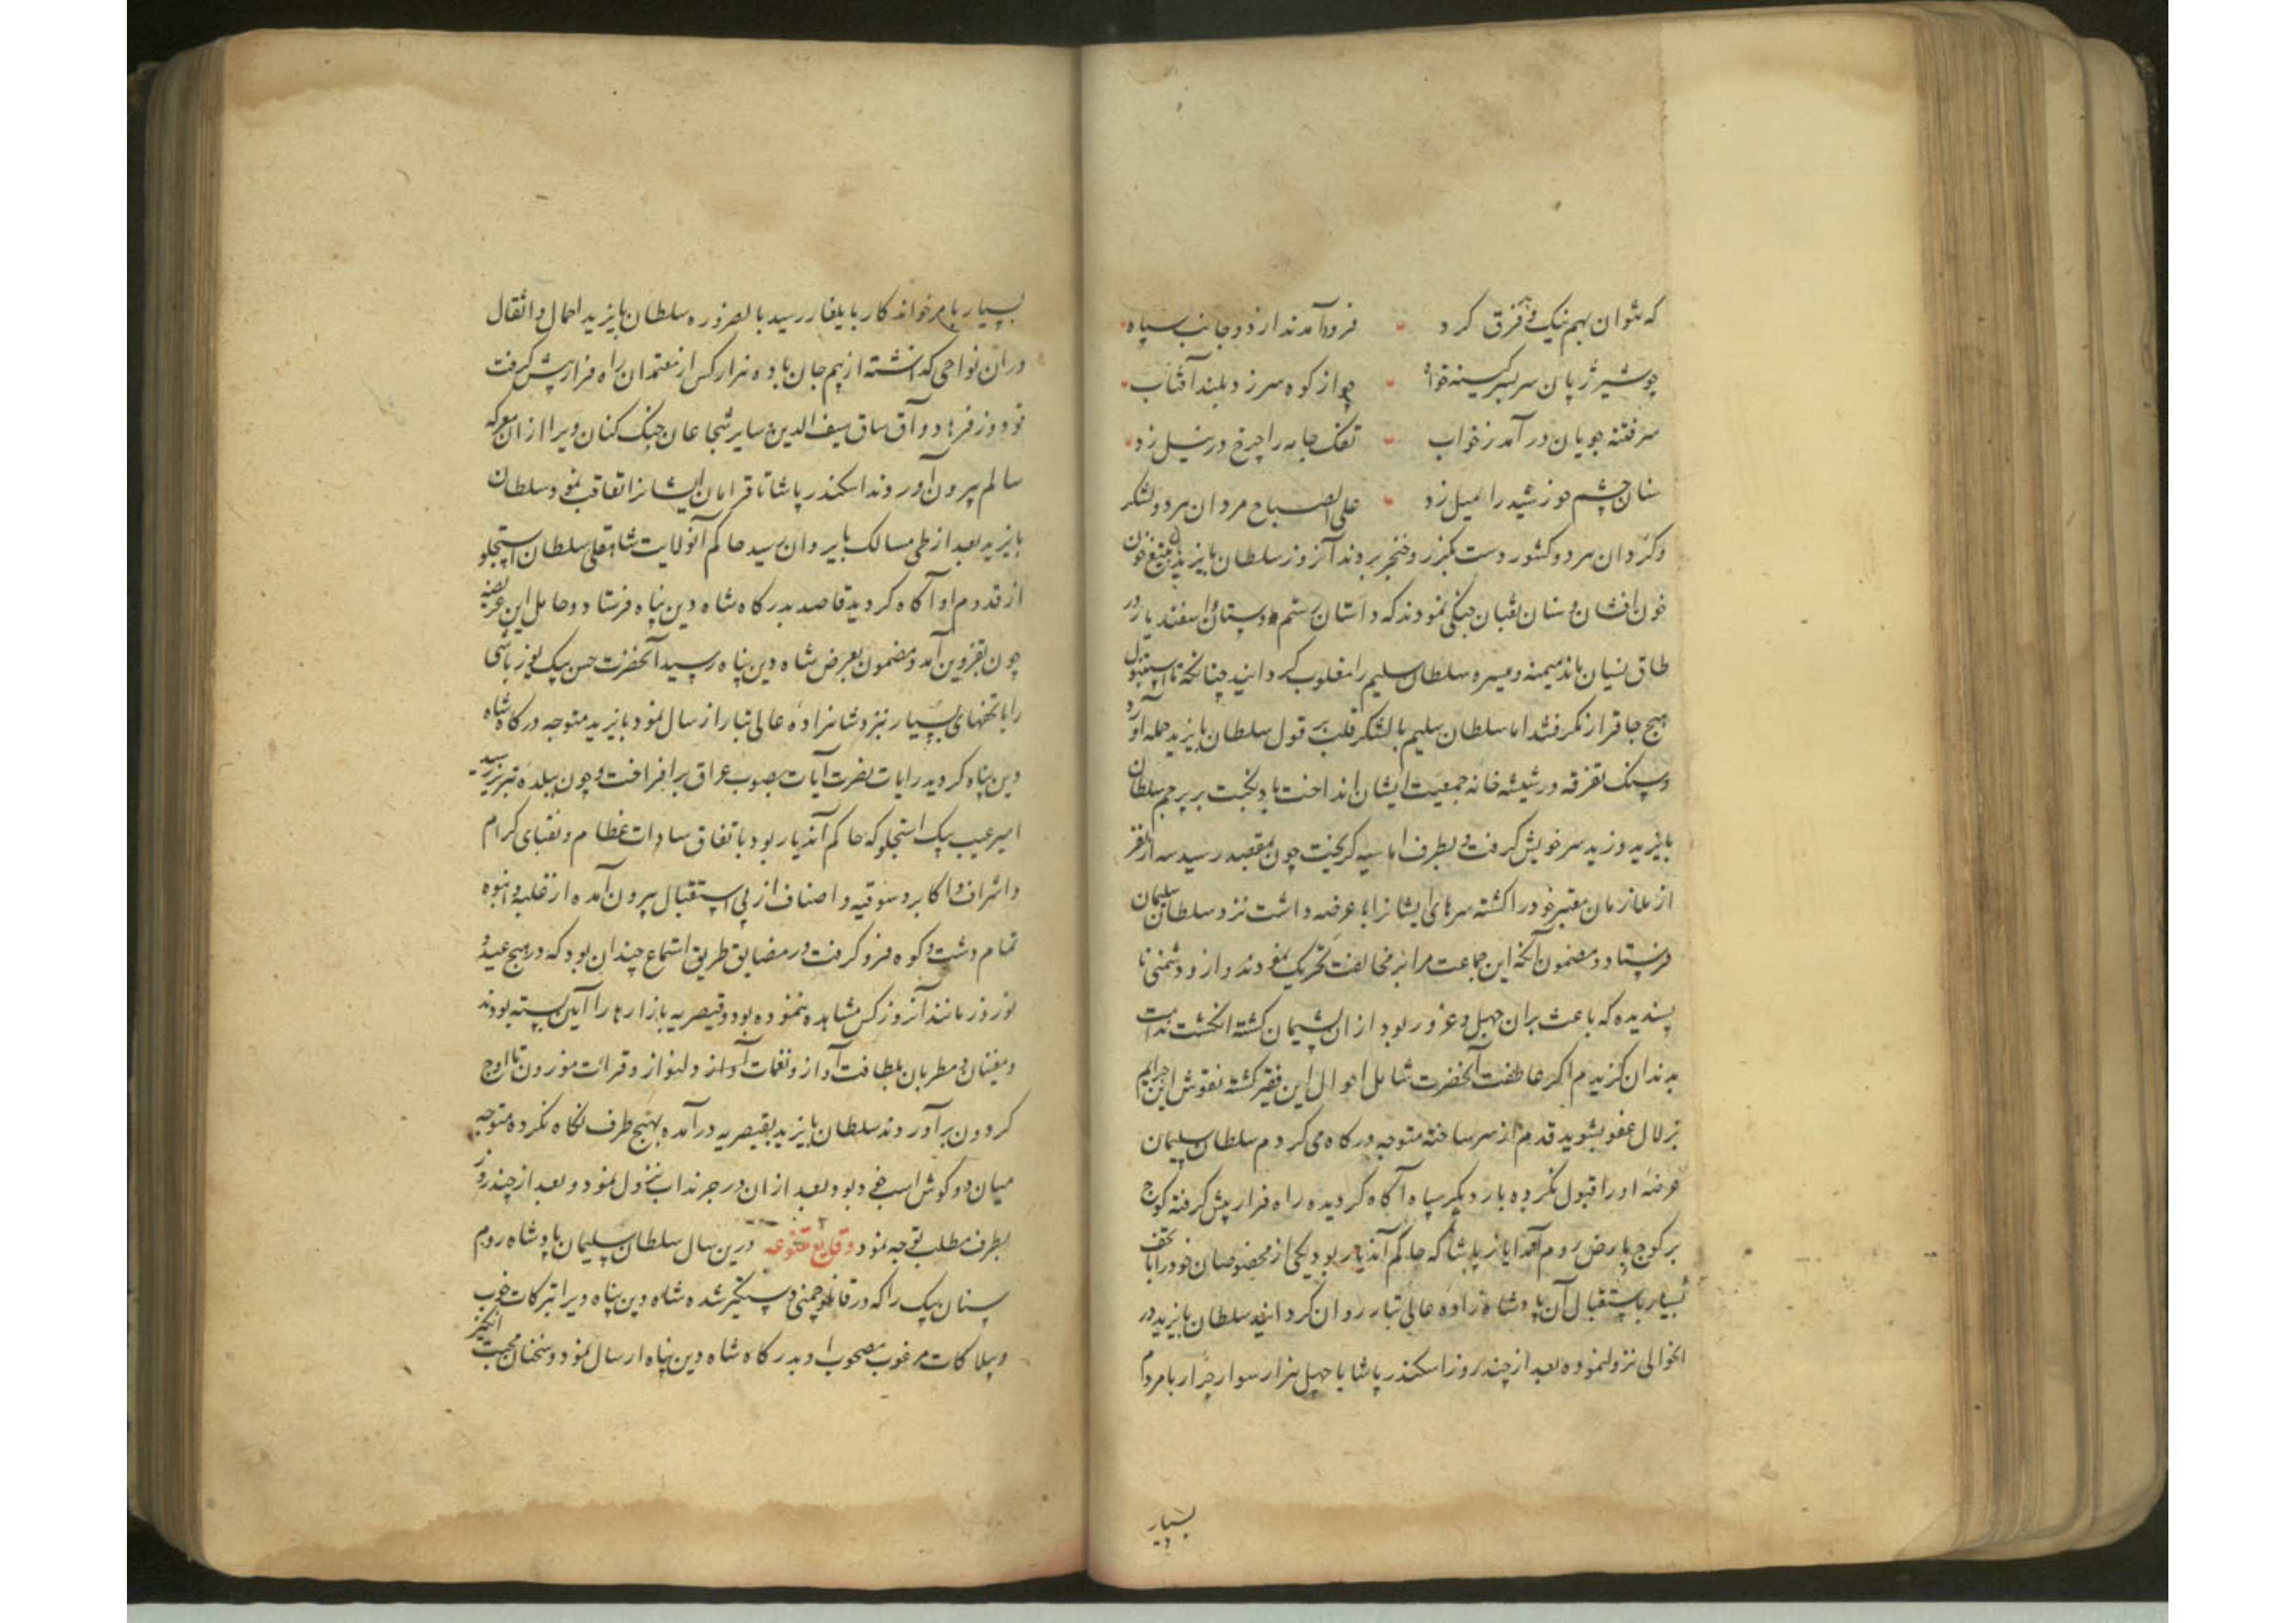 که نتوان بهم نیک و بد فرق کرد فرود آمدند از دو جانب سپاه
چو شیر ژیان سربسر کینه خواه چو از کوه سر زد بلند آفتاب
سر فتنه جویان در آمد ز خواب تفک جامه را چرخ در نیل زد
سنان چشم خورشید را میل زد علی الصباح مردان هر دو لشکر
و کردان هر دو کشور دست بکرز و خنجر بردند آنروز سلطان بایزید به تیغ خون
خون افشان و سنان ثعبان جنکی نمودند که داستان رستم دستان و اسفندیار در
طاق نسیان ماند میمنه و میسره سلطان سلیم را مغلوب کردانید چنانکه تا استنبول
هیچ جا قرار نکرفتند اما سلطان سلیم با لشکر قلب بر قول سلطان بایزید حمله آورد
و سنک تفرقه در شیشه خانه جمعیت ایشان انداخت باد نکبت بر پرچم سلطان
بایزید وزید سر خویش کرفت و بطرف اماسیه کریخت چون بمقصد رسید سه نفر
از ملازمان معتبر خود را کشته سرهای ایشانرا با عرضه داشت نزد سلطان سلیمان
فرستاد و مضمون آنکه این جماعت مرا بر مخالفت تحریک نمودند و ازو دشمنی نا
پسندیده که باعث بران جهل و غرور بود از ان پشیمان کشته انکشت ندامت
بدندان کزیدم اکر عاطفت آنحضرت شامل احوال این فقیر کشته نقوش این جرایم
بزلال عفو بشوید قدم از سر ساخته متوجه درکاه می کردم سلطان سلیمان
عرضه او را قبول نکرده بار دیکر سپاه آکاه کردیده راه فرار پیش کرفته کوچ
بر کوچ بارض روم آمد ایاز پاشا که حاکم آندیار بود یکی از مخصوصان خود را با تحف
بسیار باستقبال آن پادشاه زاده عالی تبار روان کردانید سلطان بایزید در
انحوالی نزول نموده بعد از چند روز اسکندر پاشا با چهل هزار سوار جرار با مردم
بسیار
بسیار بامر خواندکار بایلغار رسید بالضروره سلطان بایزید احمال و اثقال
دران نواحی کذاشته از بیم جان با ده هزار کس از معتمدان راه فرار پیش کرفت
قودوز فرهاد و آق ساق سیف الدین و سایر شجاعان جنک کنان ویرا از ان معرکه
سالم بیرون آوردند اسکندر پاشا تا قرامان ایشانرا تعاقب نمود سلطان
بایزید بعد از طی مسالک بایروان رسید حاکم آنولایت شاهقلی سلطان استجلو
از قدوم او آکاه کردید قاصد بدرکاه شاه دین پناه فرستاد و حامل این عریضه
چون بقزوین آمد و مضمون بعرض شاه دین پناه رسید آنحضرت حسن بیک یوزباشی
را با تحفهای بسیار نزد شاهزاده عالی تبار ارسال نمود بایزید متوجه درکاه شاه
دین پناه کردید رایات نصرت آیات بصوب عراق برافراخت و چون ببلده تبریز رسید
امیر غیب بیک استجلو که حاکم آندیار بود باتفاق سادات عظام و نقبای کرام
و اشراف و اکابر و سوقیه و اصناف از پی استقبال بیرون آمده از غلبه و انبوه
تمام دشت و کوه فرو کرفت در مضایق طریق استماع چندان بود که در هیچ عید و
نوروز مانند آنروز کس مشاهده ننموده بود و قیصریه بازارها را آیین بسته بودند
و مغنیان و مطربان بلطافت آواز و نغمات آواز دلنواز و قرائت موزون تا اوج
کردون بر آوردند سلطان بایزید بقیصریه در آمده بهیچ طرف نکاه نکرده متوجه
میان دو کوش اسب خود بود بعد از ان در چرنداب نزول نمود و بعد از چند روز
بطرف مطلب توجه نمود وقایع متنوعه درین سال سلطان سلیمان پادشاه روم
سنان بیک را که در قانلو چمنی دستکیر شده شاه دین پناه ویرا تبرکات خوب
و بیلاکات مرغوب مصحوب او بدرکاه شاه دین پناه ارسال نمود و سخنان محبت انکیز